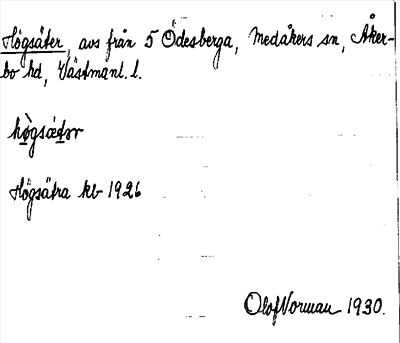 Högsäter, avs från 5 Ödesberga, Medåkers sn, Åker-
bo hd, Västmanl. l.
hö̀gsǽtər
Högsätra kb 1926
Olof Norman 1930.